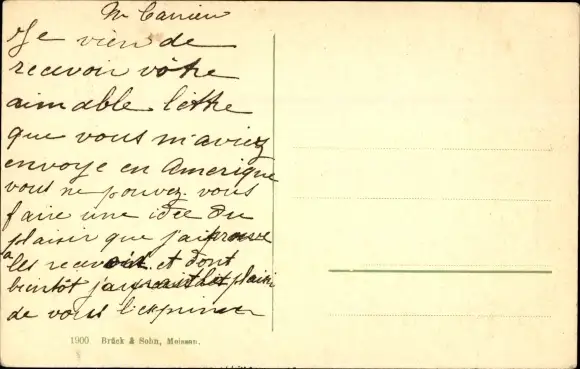 Mr Carrieu
Je vien de
recevoir vôtre
aimable lettre
que vous m'aviez
envoye en Amerique
vous ne pouvez vous
faire une idee du
plaisir que j'ai
a les recevoir et dont
bientôt plaisir
de vous l'exprimer
1900 Brück & Sohn, Meissen.